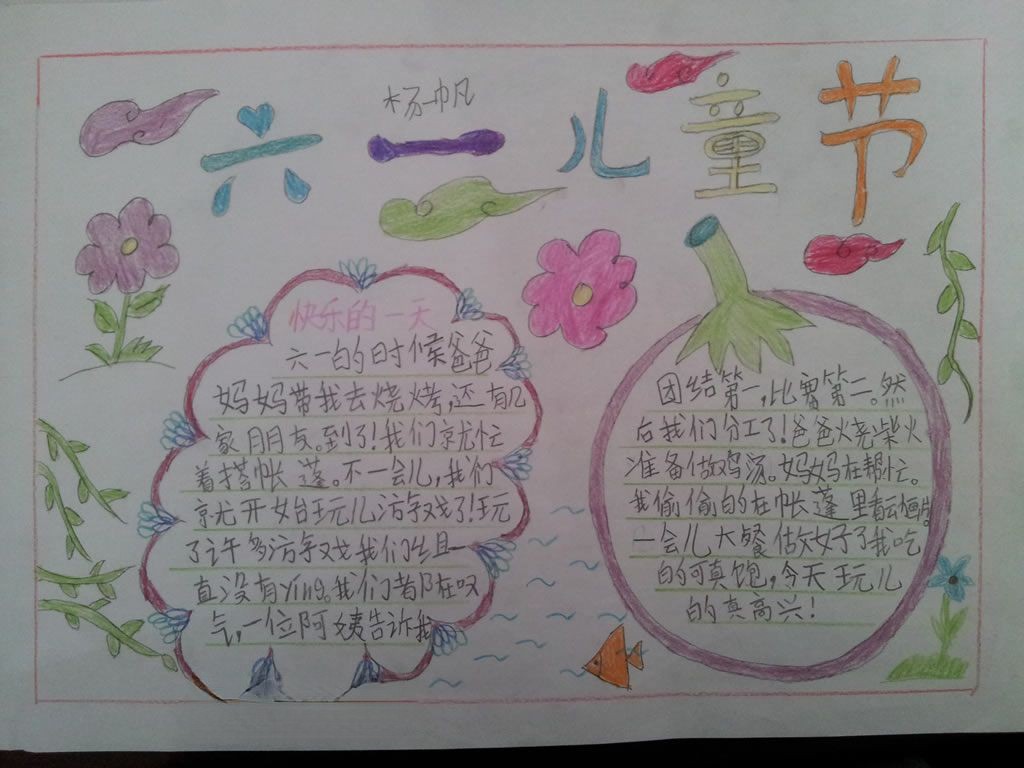 杨一帆
六一儿童节
快乐的一天
六一的时候爸爸
妈妈带我去烧烤,还有几
家朋友。到了!我们就忙
着搭帐蓬。不一会儿,我们
就开始玩儿游戏了!玩
了许多游戏我们组一
直没有ying。我们都在叹
气,一位阿姨告诉我
团结第一,比赛第二。然
后我们分工了!爸爸烧柴火
准备做鸡汤。妈妈在帮忙。
我偷偷的在帐蓬里看动画片。
一会儿大餐做好了我吃
的可真饱,今天玩儿
的真高兴!